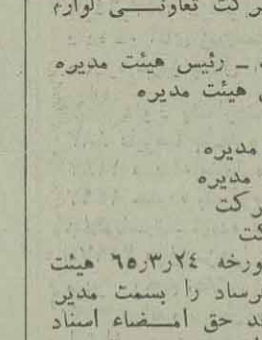 رکت تعاونی لوازم
ـ رئیس هیئت مدیره
هیئت مدیره
مدیره
مدیره
رکت
کت
ورخه ۶۵٫۳٫۲۴ هیئت
رساد را بسمت مدیر
د حق امضاء اسناد